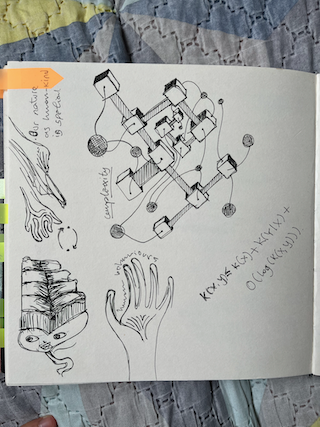 Our nature
as humankind
is spatial.
complexity
human
K(x,y) ≤ K(x) + K(Y|X) +
O(log(K(x,y)))